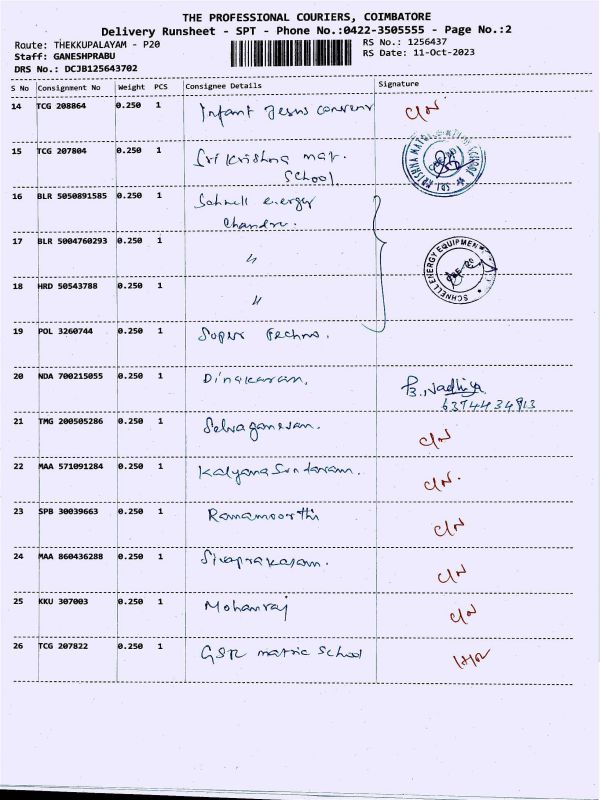 THE PROFESSIONAL COURIERS, COIMBATORE
Delivery Runsheet - SPT - Phone No.:0422-3505555 - Page No.:2
Route: THEKKUPALAYAM - P20
RS No.: 1256437
Staff: GANESHPRABU
RS Date: 11-Oct-2023
DRS No.: DCJB125643702
S No Consignment No Weight PCS Consignee Details Signature
14 TCG 208864 0.250 1 Infant Jesus convent C/N
15 TCG 207804 0.250 1 Sri Krishna mat.
School.
16 BLR 5050891585 0.250 1 Schnell energy
Chandru.
17 BLR 5004760293 0.250 1 〃
SCHNELL ENERGY EQUIPMEN
18 HRD 50543788 0.250 1 〃
19 POL 3260744 0.250 1 Super Techno.
20 NDA 700215055 0.250 1 Dinakaran. B. Nadhiya
6374434913
21 TMG 200505286 0.250 1 Selvaganesan. C/N
22 MAA 571091284 0.250 1 Kalyana Sundaram. C/N.
23 SPB 30039663 0.250 1 Ramamoorthi C/N
24 MAA 860436288 0.250 1 Sivaprakasam. C/N
25 KKU 307003 0.250 1 Mohanraj C/N
26 TCG 207822 0.250 1 GSR matric School